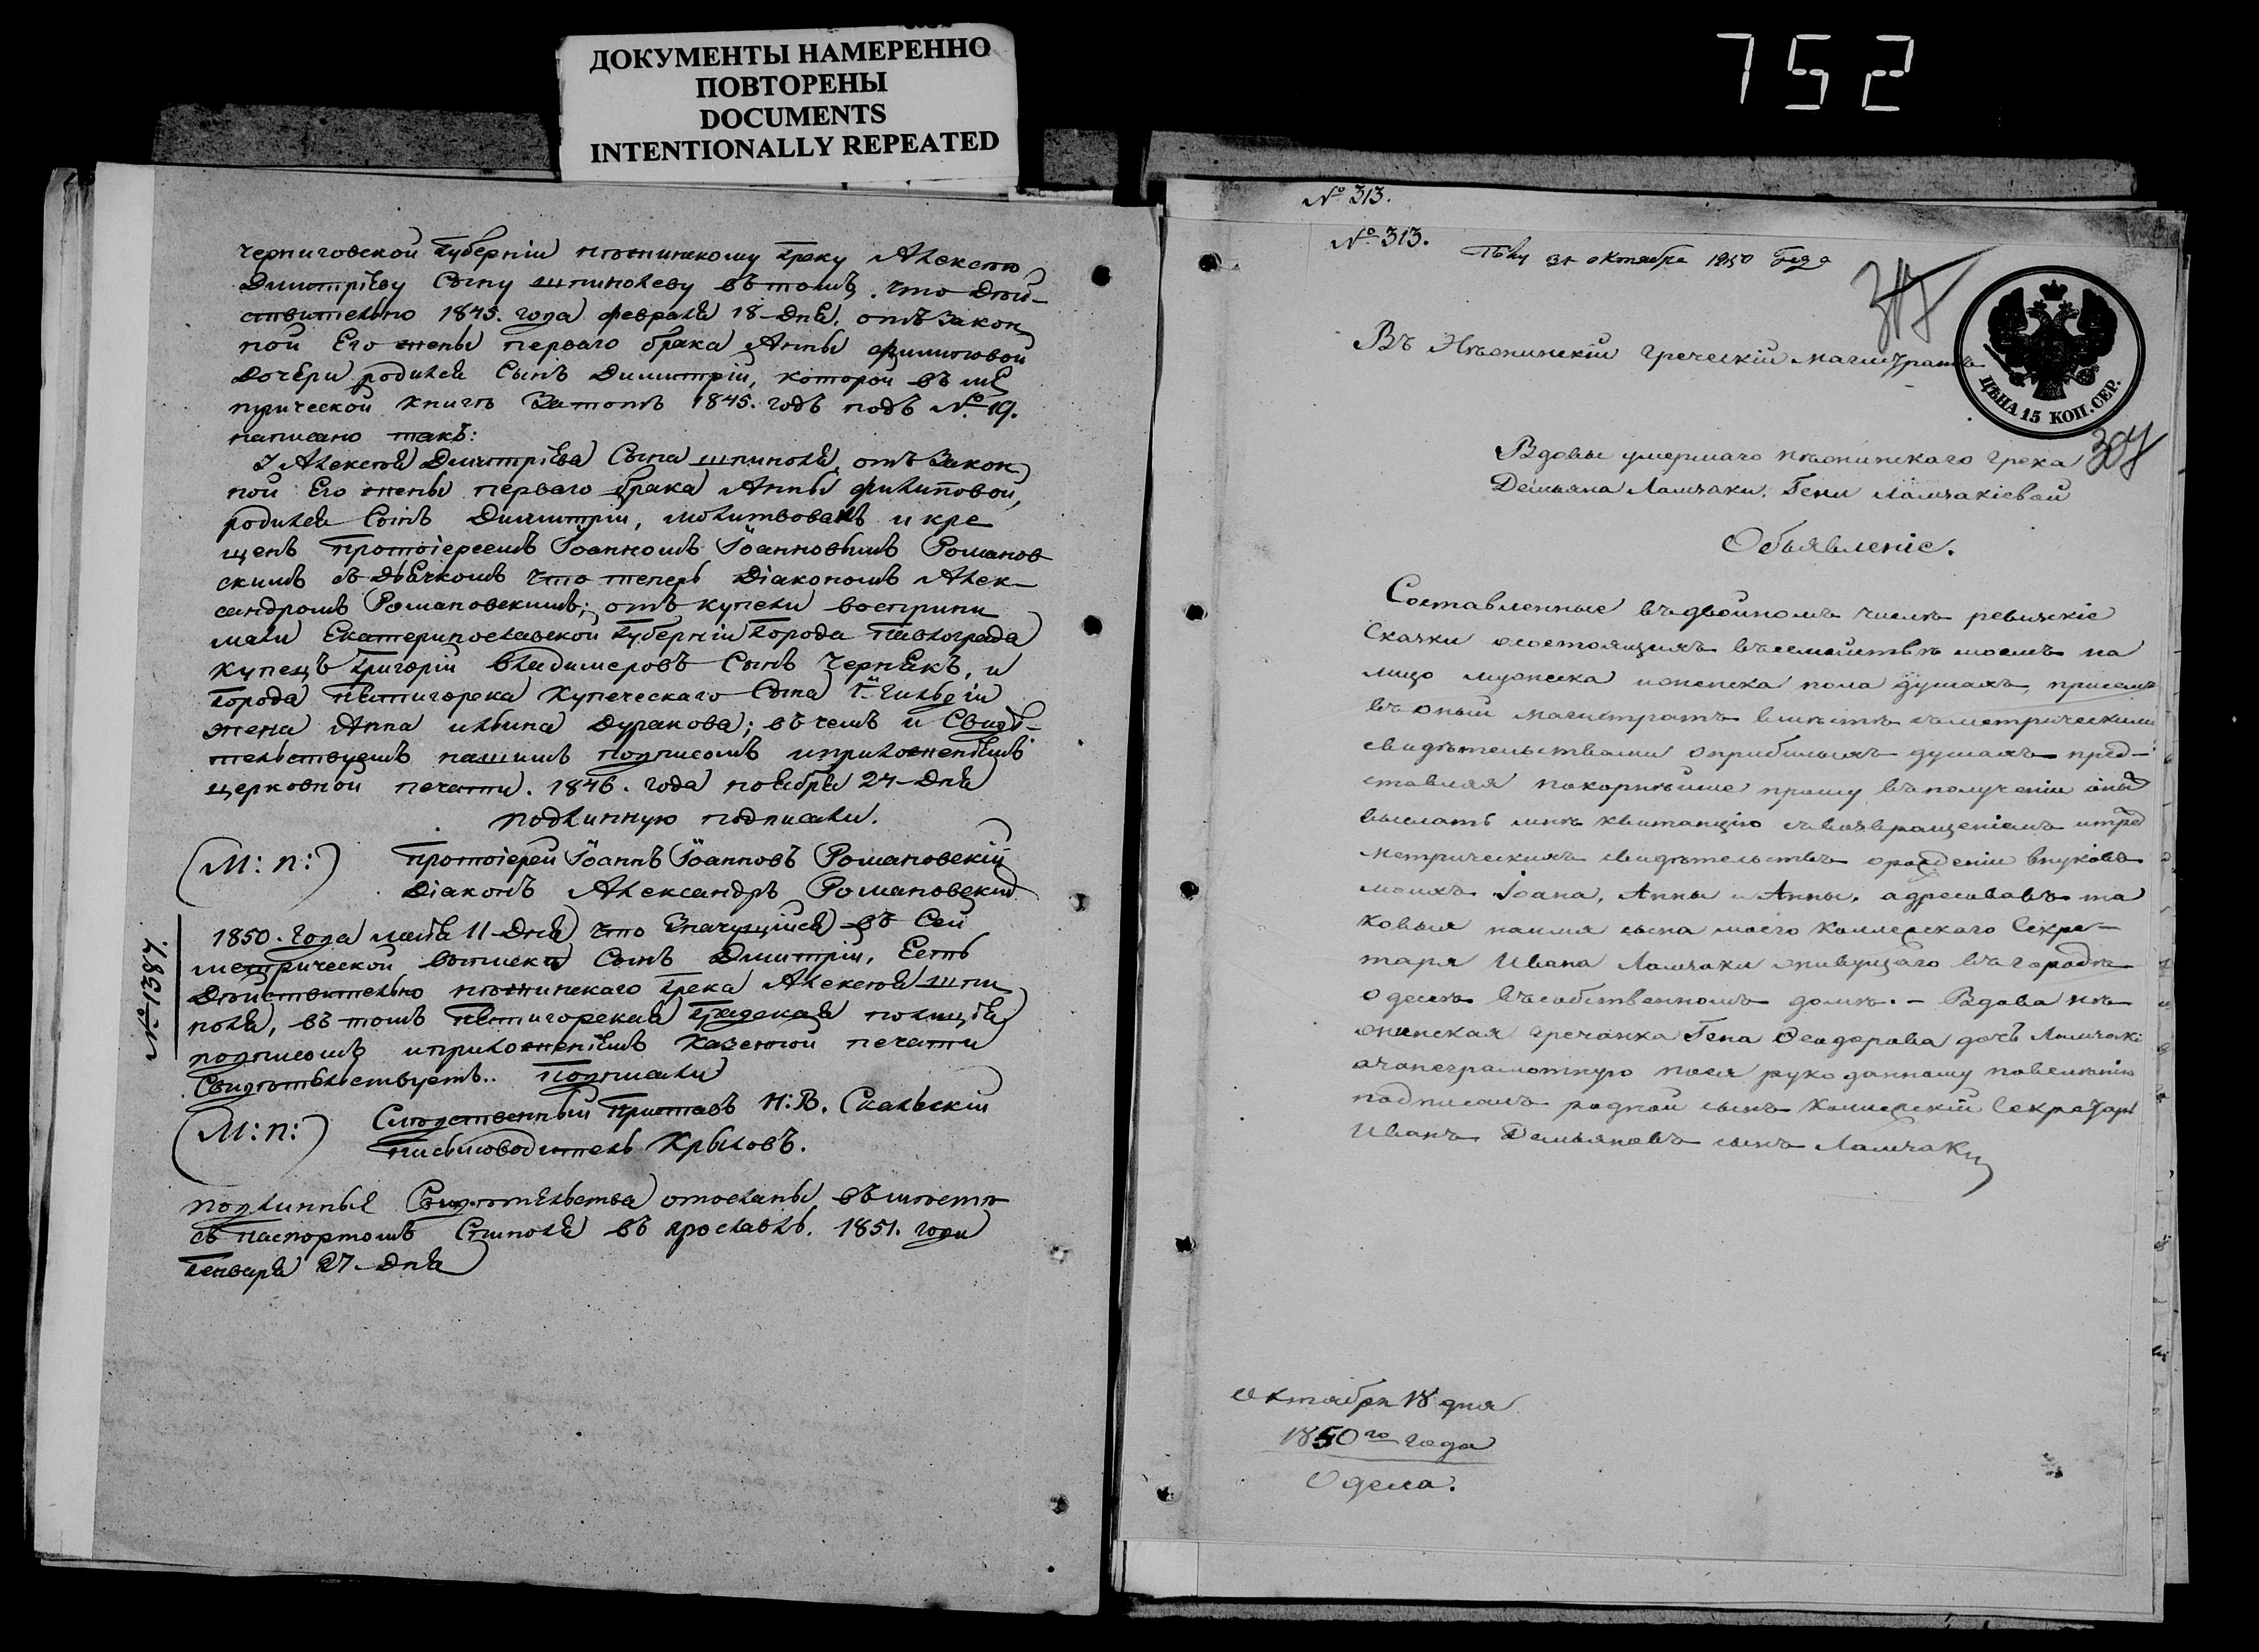 ДОКУМЕНТЫ НАМЕРЕННО
ПОВТОРЕНЫ
DOCUMENTS
INTENTIONALLY REPEATED
752
черниговской Губерніи нѣжинскому Греку Алексѣю
Димитріеву Сыну шпинолеву въ томъ, что Дѣй-
ствительно 1845. года февраля 18-Дня, отъ Закон
ной Его жены перваго брака Анны филиповой
Дочери родился Сынъ Димитрій, которой въ ме
трической книгѣ За тотъ 1845. годъ подъ №. 19.
написано такъ:
У Алексѣя Димитріева Сына шпиноля, отъ Закон
ной Его жены перваго брака Анны филиповой,
родился Сынъ Димитрій, молитвованъ и кре
щенъ Протоіереемъ Іоанномъ Іоанновымъ Романов
скимъ съ Дьячкомъ что теперь Діакономъ Алек-
сандромъ Романовскимъ; отъ купели восприни
мали Екатеринославской Губерніи Города Павлограда
купецъ Григорій Владимеровъ Сынъ Чернякъ, и
Города Пятигорска Купеческаго Сына 1й Гильдіи
жена Анна ильина Дуракова; въ чемъ и Свидѣ-
тельствуемъ нашимъ подписомъ и приложеніемъ
церковной печати. 1846. года ноября 24-Дня
Подлинную подписали.
(М: п:) Протоіерей Іоаннъ Іоанновъ Романовскій
Діаконъ Александръ Романовскій
1850. Года маія 11-Дня что Значущійся въ Сей
метрической выписки Сынъ Димитрій, Есть
Дѣйствительно нѣжинскаго Грека Алексѣя шпи
ноля, въ томъ Пятигорская Градская полиція
подписомъ и приложеніемъ Казенной печати
Свидѣтельствуетъ.. Подписали
№ 1387.
(М: п:) Слѣдственный Приставъ Н: В. Скальскій
Письмоводитель Крыловъ.
Подлинныя Свидѣтельства отосланы въ мѣстѣ
съ Паспортомъ Спиноля въ ярославль. 1851. года
Генваря 27-Дня
№ 313.
№ 313.
31 октября 1850 Года
307
Въ Нѣжинскій Греческій магистратъ
ЦѢНА 15 КОП. СЕР.
307
Вдовы умершаго нѣжинскаго грека
Демьяна Ламчаки, Гени Ламчакіевой
Объявленіе.
Составленные въ двойномъ числѣ ревизскіе
Сказки о состоящихъ въ семействѣ моемъ на
лицо мужеска и женска пола душахъ, при семъ
въ оный магистратъ вмѣстѣ съ метрическими
свидѣтельствами о прибылыхъ душахъ пред-
ставляя покорнѣйше прошу въ полученіи
выслать мнѣ квитанцію съ возвращеніемъ
метрическихъ свидѣтельствъ о рожденіи внуковъ
моихъ Іоана, Анны и Анны, адресовавъ та
ковыя на имя сына моего Коллежскаго Секре-
таря Ивана Ламчаки живущаго въ городѣ
Одессѣ въ собственномъ домѣ. – Вдова нѣ
жинская гречанка Гена Феодорова дочь
а за неграмотную
подписалъ родной сынъ Коллежскій Секретарь
Иванъ Демьяновъ сынъ Ламчаки
Октября 18 дня
1850го года
Одесса.